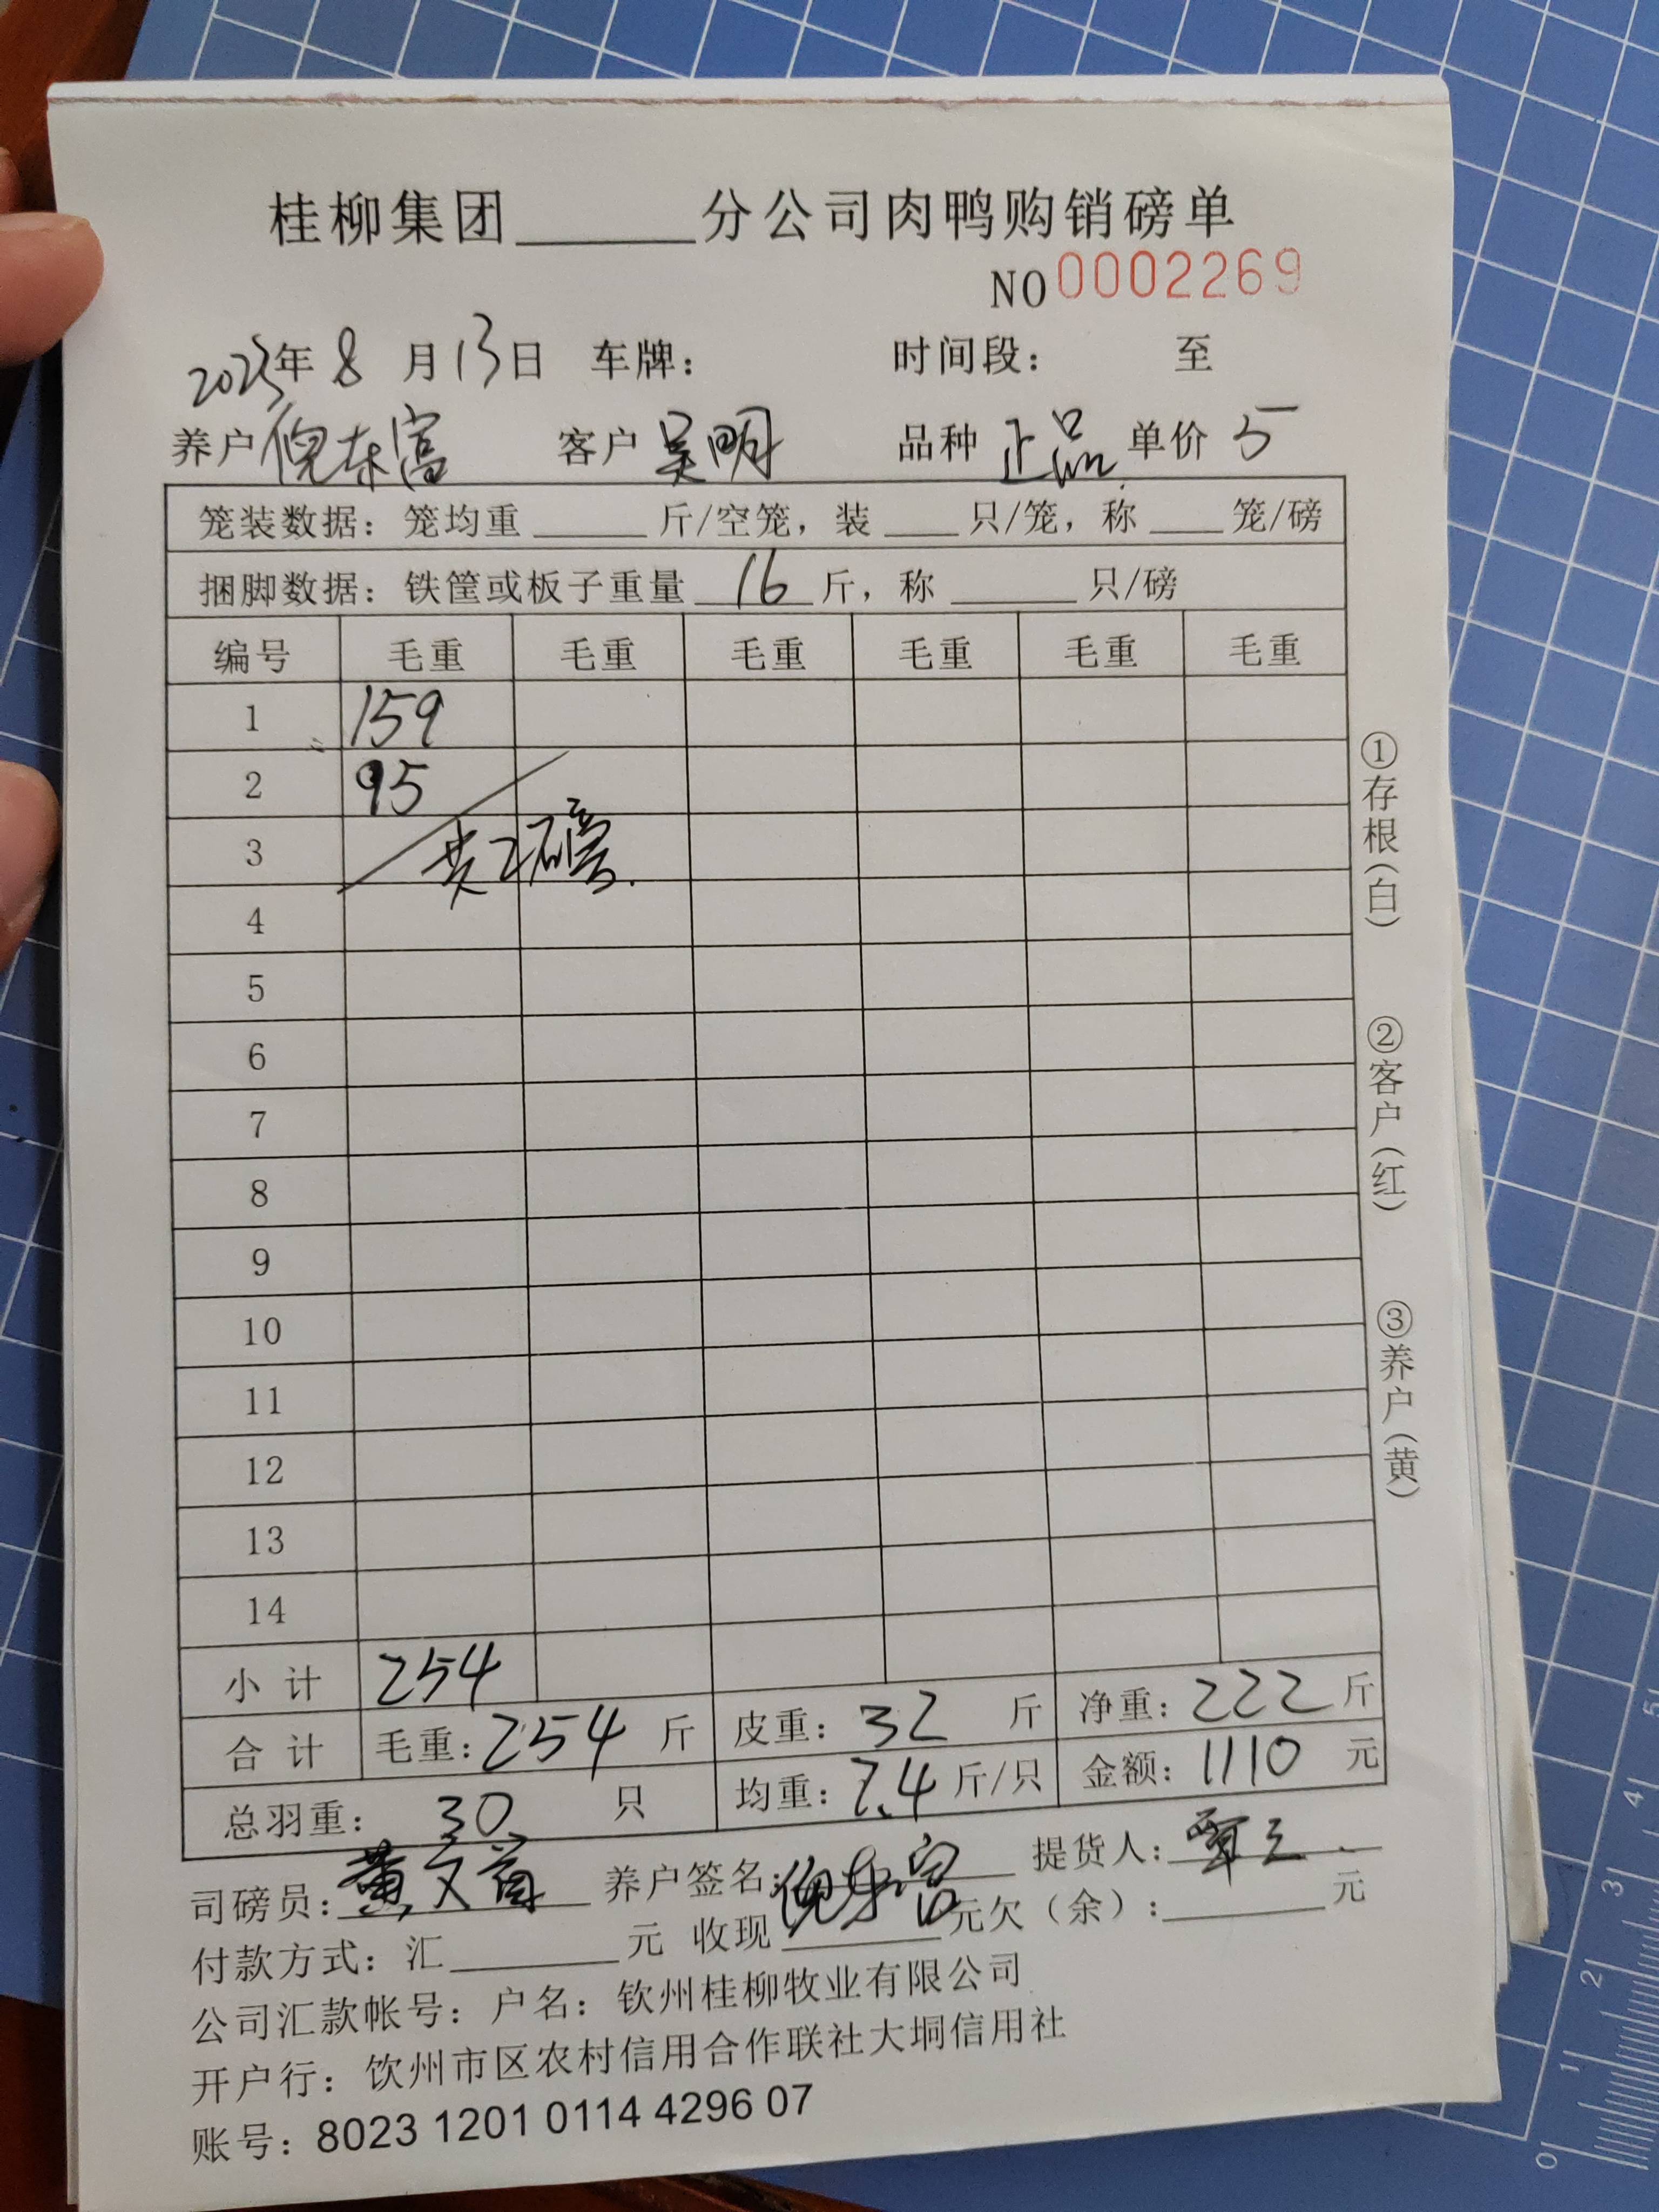 桂柳集团______分公司肉鸭购销磅单
NO 0002269
2025年 8 月 13 日 车牌： 时间段： 至
养户 倪东富 客户 吴明 品种 正品 单价 5
笼装数据：笼均重______斤/空笼，装____只/笼，称____笼/磅
捆脚数据：铁筐或板子重量 16 斤，称______只/磅
编号 毛重 毛重 毛重 毛重 毛重 毛重
1 159
2 95
3 共2磅
4
5
6
7
8
9
10
11
12
13
14
小 计 254
合 计 毛重：254 斤 皮重：32 斤 净重：222 斤
总羽重：30 只 均重：7.4 斤/只 金额：1110 元
司磅员：黄文首 养户签名：倪东富 提货人：
付款方式：汇______元 收现______元欠（余）：______元
公司汇款帐号：户名：钦州桂柳牧业有限公司
开户行：钦州市区农村信用合作联社大垌信用社
账号：8023 1201 0114 4296 07
①存根（白）
②客户（红）
③养户（黄）
0 1 2 3 4 5